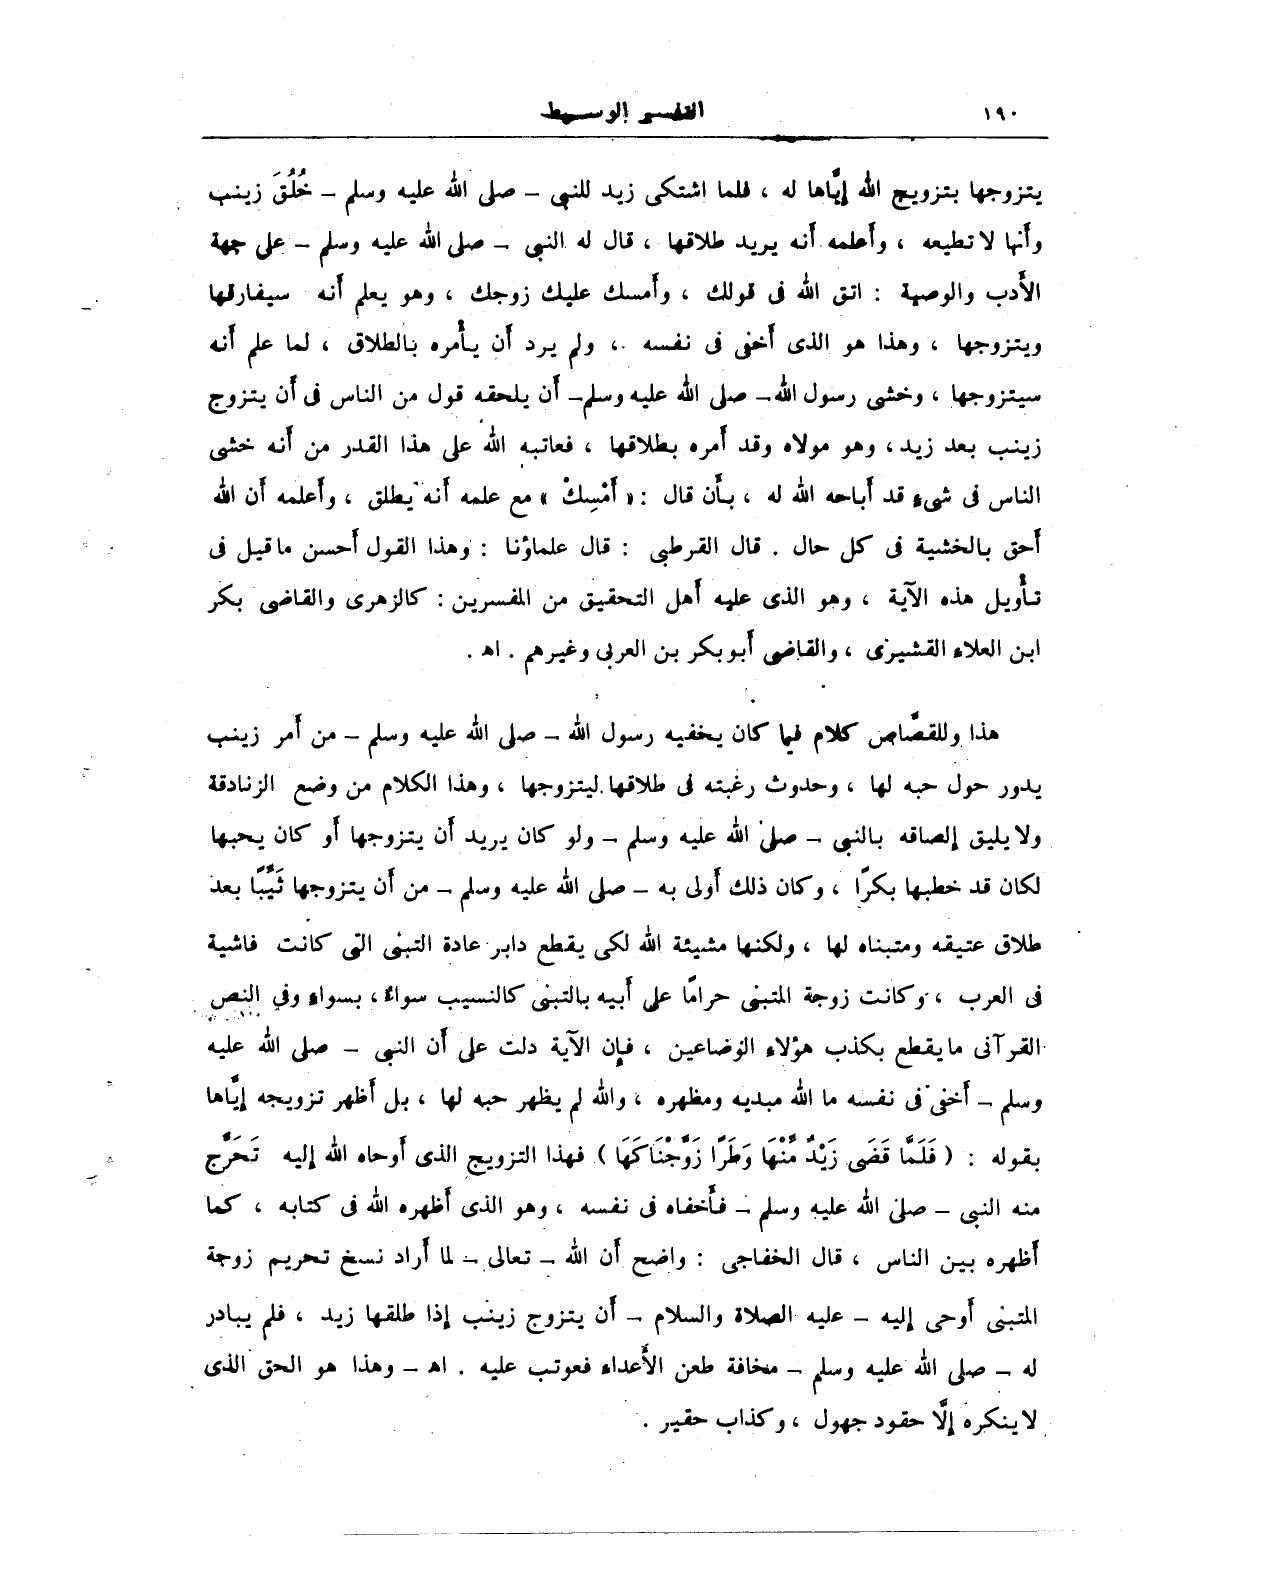 ١٩٠
التفسير الوسيط
يتزوجها بتزويج الله إيَّاها له ، فلما اشتكى زيد للنبى – صلى الله عليه وسلم – خُلُقَ زينب
وأنها لا تطيعه ، وأعلمه أنه يريد طلاقها ، قال له النبى – صلى الله عليه وسلم – على جهة
الأدب والوصية : اتق الله فى قولك ، وأمسك عليك زوجك ، وهو يعلم أنه سيفارقها
ويتزوجها ، وهذا هو الذى أخفى فى نفسه ، ولم يرد أن يأمره بالطلاق ، لما علم أنه
سيتزوجها ، وخشى رسول الله – صلى الله عليه وسلم – أن يلحقه قول من الناس فى أن يتزوج
زينب بعد زيد ، وهو مولاه وقد أمره بطلاقها ، فعاتبه الله على هذا القدر من أنه خشى
الناس فى شىء قد أباحه الله له ، بأن قال : « أَمْسِكْ » مع علمه أنه يطلق ، وأعلمه أن الله
أحق بالخشية فى كل حال . قال القرطبى : قال علماؤنا : وهذا القول أحسن ما قيل فى
تأويل هذه الآية ، وهو الذى عليه أهل التحقيق من المفسرين : كالزهرى والقاضى بكر
ابن العلاء القشيرى ، والقاضى أبو بكر بن العربى وغيرهم . اه .
هذا وللقصَّاص كلام فيما كان يخفيه رسول الله – صلى الله عليه وسلم – من أمر زينب
يدور حول حبه لها ، وحدوث رغبته فى طلاقها ليتزوجها ، وهذا الكلام من وضع الزنادقة
ولا يليق إلصاقه بالنبى – صلى الله عليه وسلم – ولو كان يريد أن يتزوجها أو كان يحبها
لكان قد خطبها بكرًا ، وكان ذلك أولى به – صلى الله عليه وسلم – من أن يتزوجها ثَيِّبًا بعد
طلاق عتيقه ومتبناه لها ، ولكنها مشيئة الله لكى يقطع دابر عادة التبنى التى كانت فاشية
فى العرب ، وكانت زوجة المتبنى حرامًا على أبيه بالتبنى كالنسيب سواءً ، بسواء وفي النص
القرآنى ما يقطع بكذب هؤلاء الوضاعين ، فإن الآية دلت على أن النبى – صلى الله عليه
وسلم – أخفى فى نفسه ما الله مبديه ومظهره ، والله لم يظهر حبه لها ، بل أظهر تزويجه إيَّاها
بقوله : ( فَلَمَّا قَضَى زَيْدٌ مِّنْهَا وَطَرًا زَوَّجْنَاكَهَا ) فهذا التزويج الذى أوحاه الله إليه تَحَرَّج
منه النبى – صلى الله عليه وسلم – فأخفاه فى نفسه ، وهو الذى أظهره الله فى كتابه ، كما
أظهره بين الناس ، قال الخفاجى : واضح أن الله – تعالى – لما أراد نسخ تحريم زوجة
المتبنى أوحى إليه – عليه الصلاة والسلام – أن يتزوج زينب إذا طلقها زيد ، فلم يبادر
له – صلى الله عليه وسلم – مخافة طعن الأعداء فعوتب عليه . اه – وهذا هو الحق الذى
لا ينكره إلَّا حقود جهول ، وكذاب حقير .